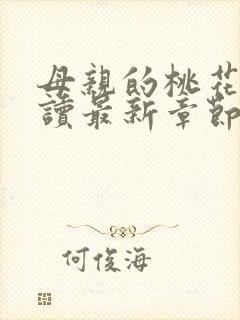 母親的桃花
讀最新章節
何俊海